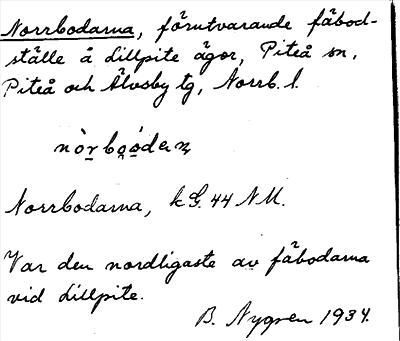 Norrbodarna, förutvarande fäbod-
ställe å Lillpite ägor, Piteå sn,
Piteå och Älvsby tg, Norrb. l.
nòrboodeṇ
Norrbodarna, k G. 44 NM.
Var den nordligaste av fäbodarna
vid Lillpite.
B. Nygren 1934.